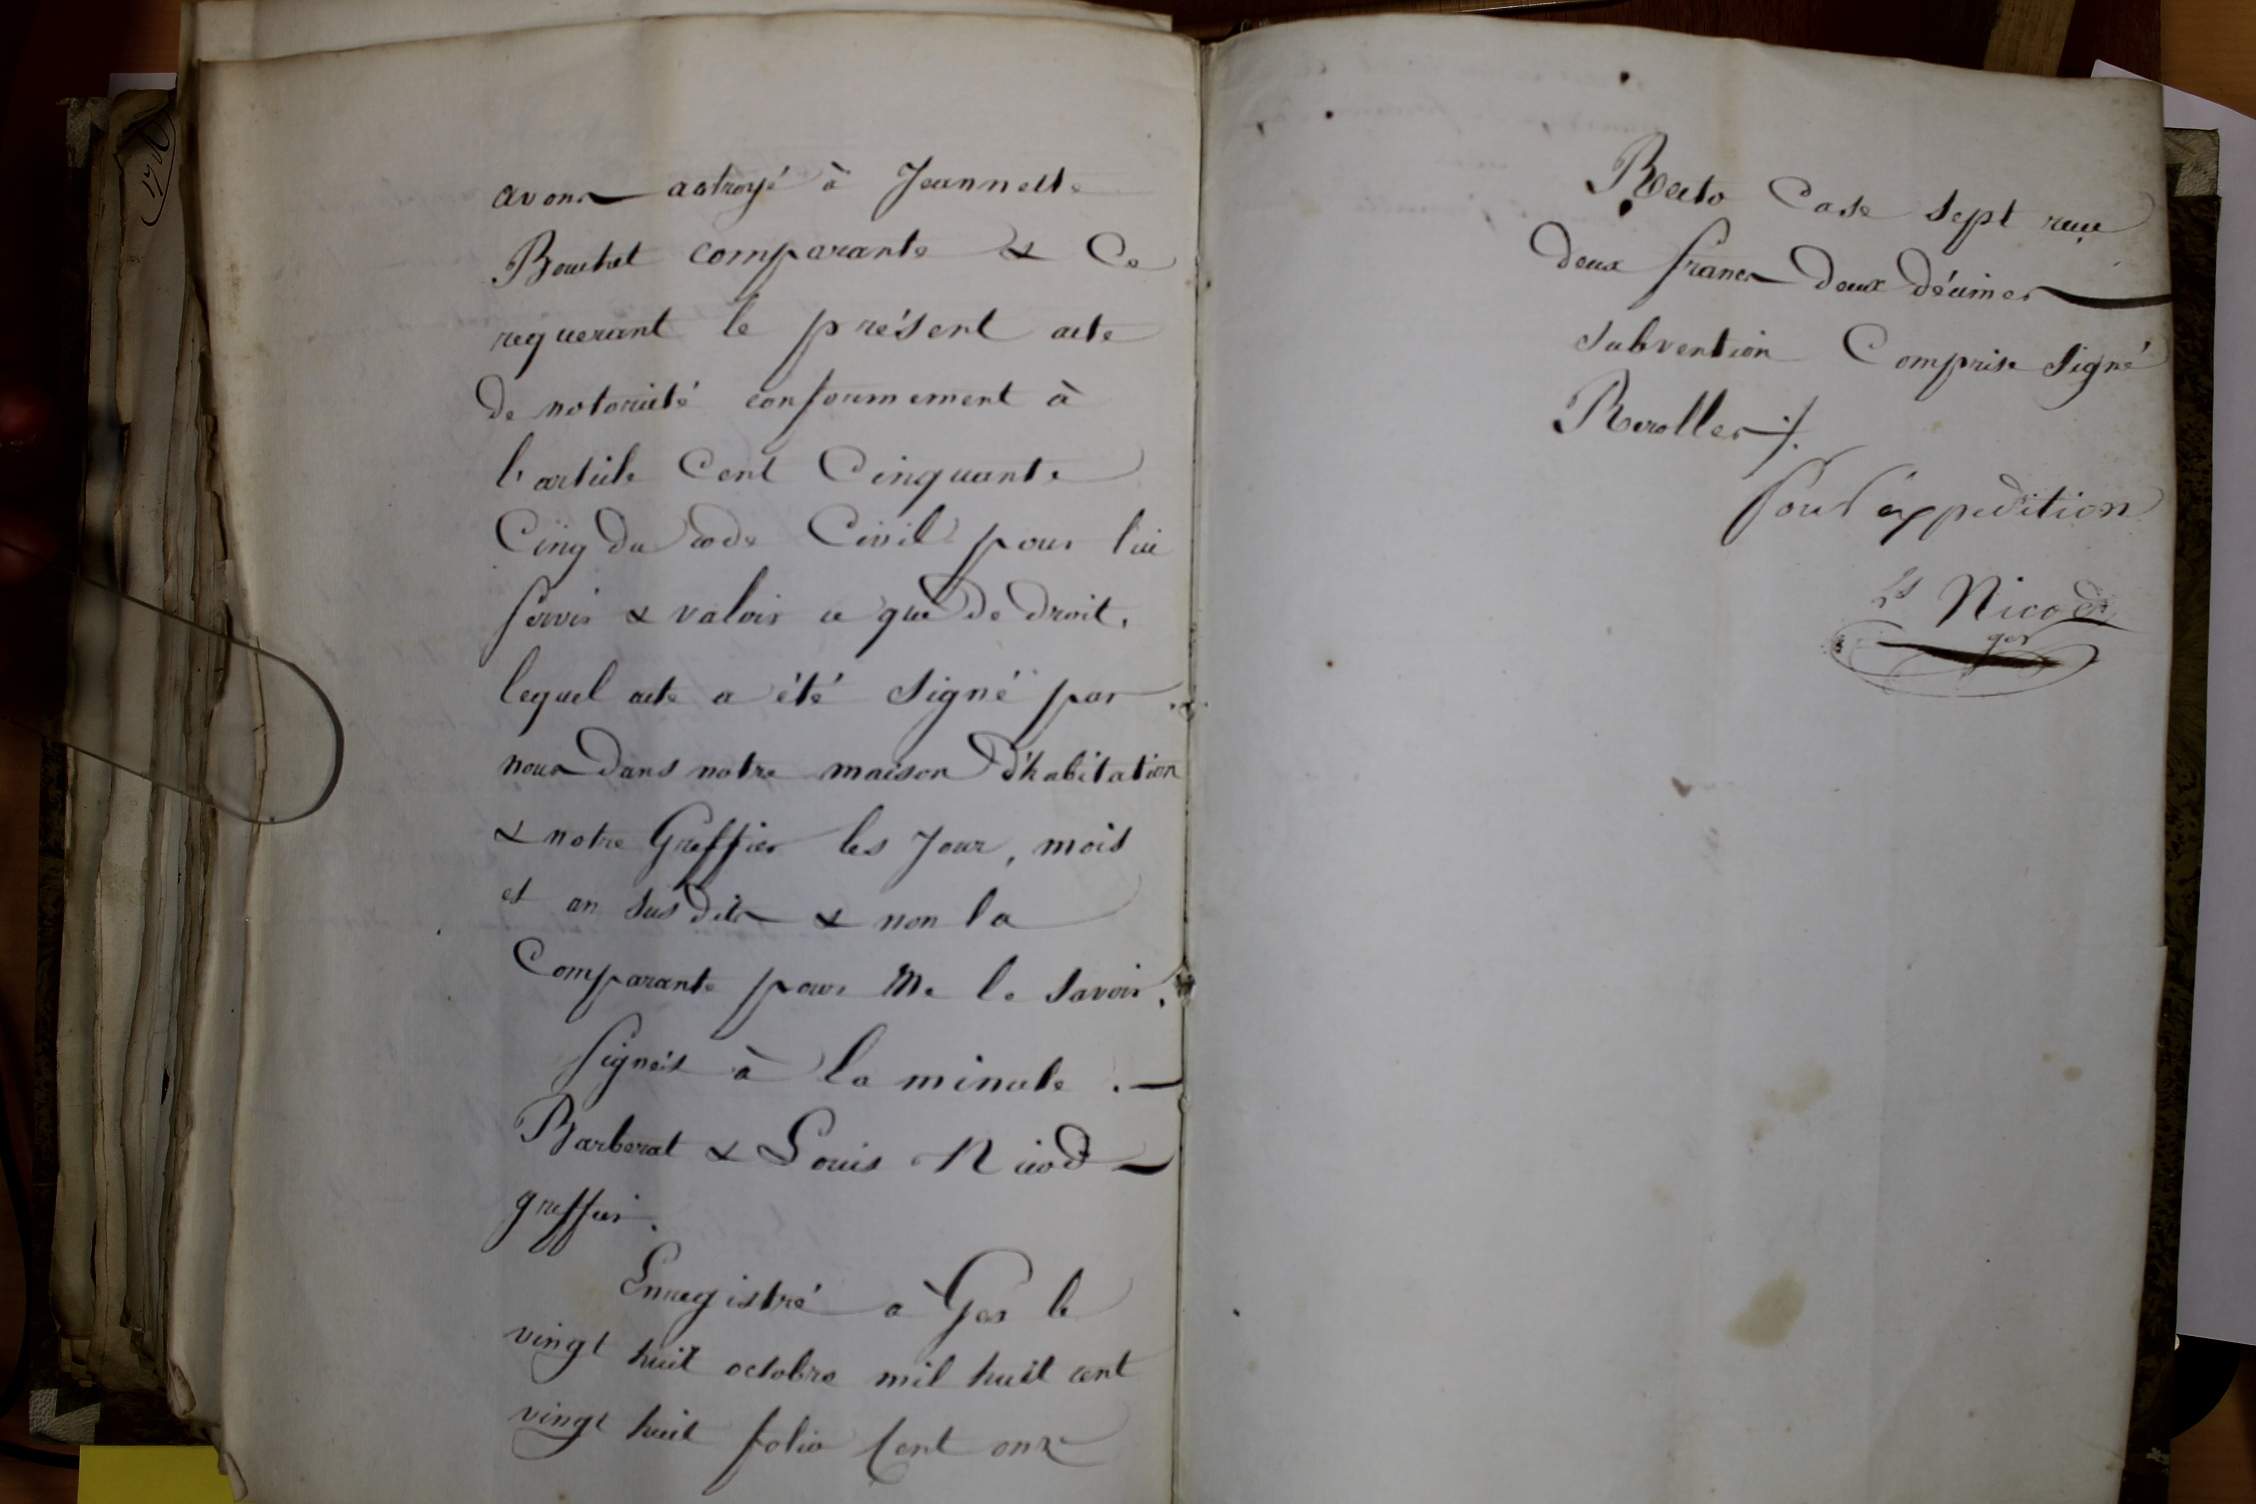 avons actroyé à Jeannette
Bouchet comparante & Ce
requerant le présent acte
de notoriété conformement à
l'article Cent Cinquante
Cinq du code Civil pour lui
servir & valoir ce que de droit,
lequel acte a été signé par
nous dans notre maison d'habitation
& notre Greffier les Jour, mois
et an susdits & non la
Comparante pour Ne le savoir.
Signés à la minute . —
Barberat & Louis Nicod —
greffier.
Enregistré a Gex le
vingt huit octobre mil huit cent
vingt huit folio Cent onze
Recto Case sept reçu
deux francs deux décimes
subvention Comprise signé
Rerolles ⁒
Pour expédition
Ls Nicod
ger